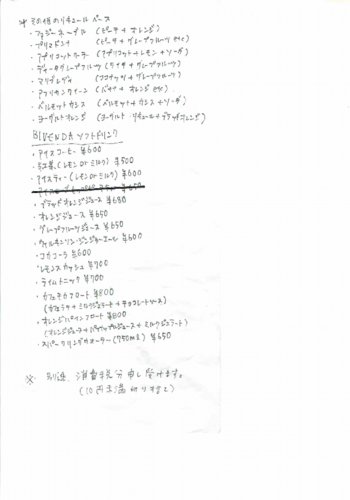 * その他のリキュールベース
・ファジーネーブル (ピーチ + オレンジ)
・アプリコットクーラー (アプリコット + レモン + ソーダ)
・ディタグレープフルーツ (ライチ + グレープフルーツ)
・マリブ (ココナッツ + グレープフルーツ)
・アフリカンクイーン (バナナ + オレンジ etc)
・パルモット カシス (ベルモット + カシス + ソーダ)
・ヨーグルトオレンジ (ヨーグルトリキュール + ブラッドオレンジ)
BIVENDA ソフトドリンク
・アイスコーヒー ¥600
・紅茶 (レモン or ミルク) ¥500
・アイスティー (レモン or ミルク) ¥600
・ブラッドオレンジジュース ¥650
・オレンジジュース ¥650
・グレープフルーツジュース ¥650
・ウィルキンソン・ジンジャーエール ¥600
・コカコーラ ¥600
・レモンスカッシュ ¥700
・ライムトニック ¥700
・カフェモカフロート ¥800
(カフェラテ + ミルクジェラート + チョコレートソース)
・オレンジパインフロート ¥800
(オレンジジュース + パイナップルジュース + ミルクジェラート)
・スパークリングウォーター (750ml) ¥650
※ 別途、消費税分申し受けます。
(10円未満切り捨て)